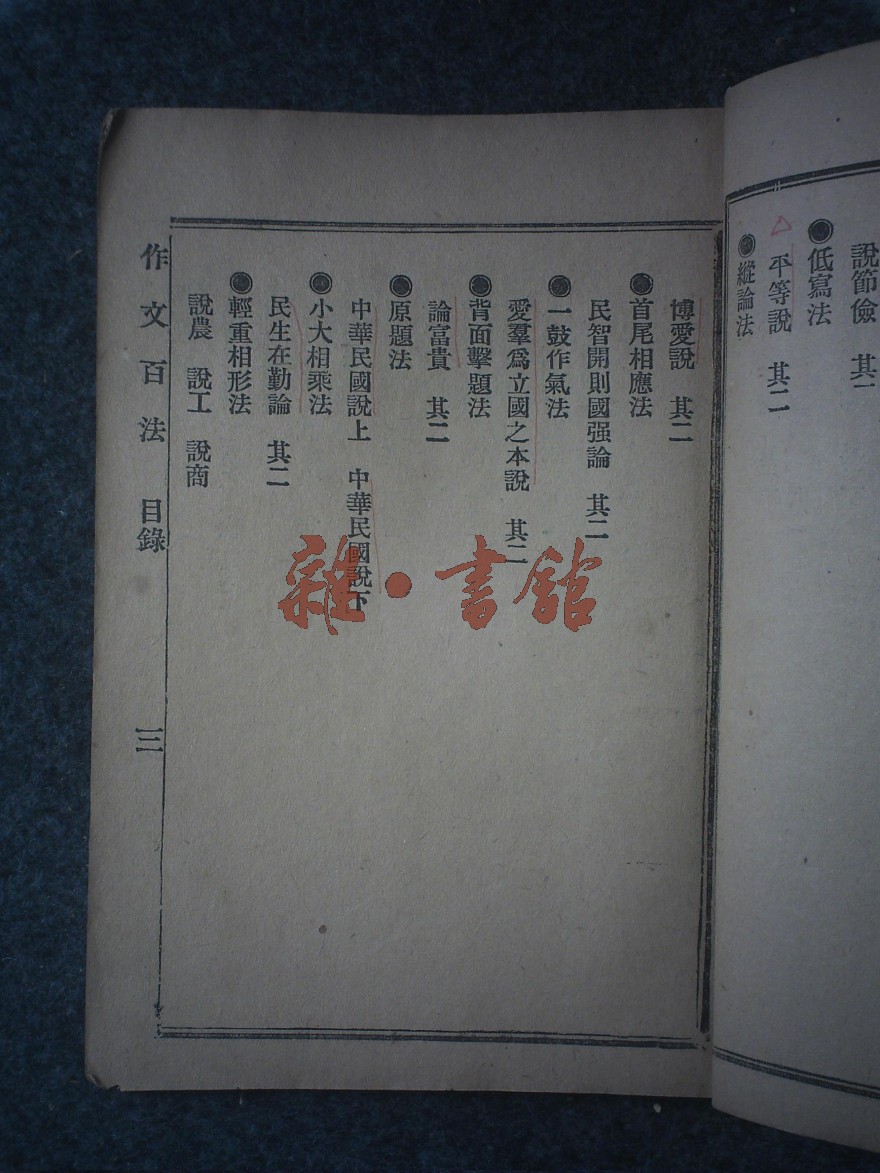 說節儉 其二
●低寫法
平等說 其二
●縱論法
博愛說 其二
●首尾相應法
民智開則國强論 其二
●一鼓作氣法
愛羣爲立國之本說 其二
●背面擊題法
論富貴 其二
●原題法
中華民國說上 中華民國說下
●小大相乘法
民生在勤論 其二
●輕重相形法
說農 說工 說商
作文百法 目錄 三
雜·書館